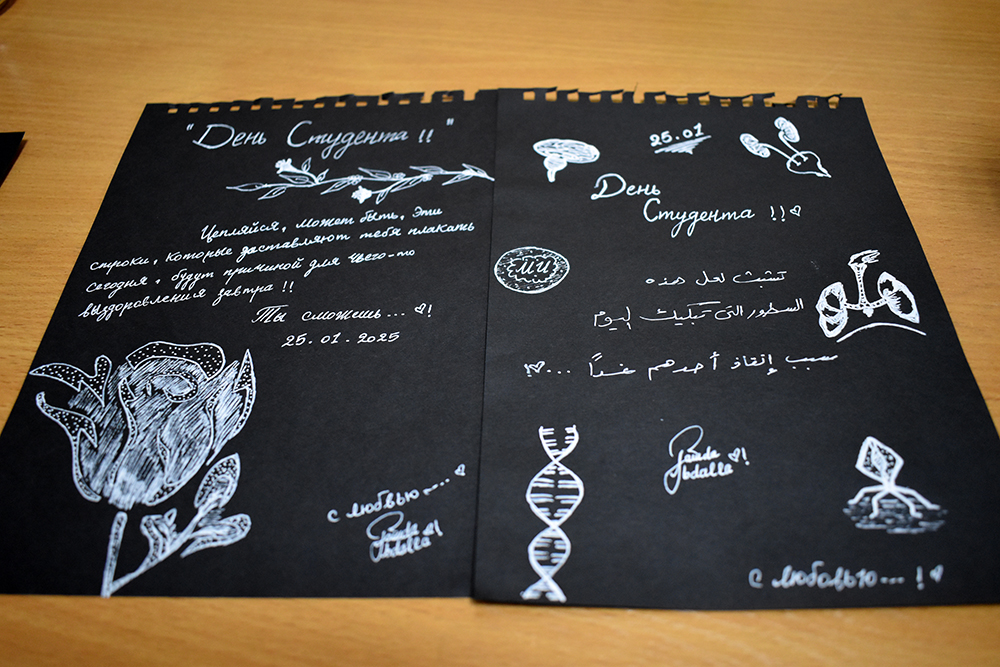 "День Студента !!"
Цепляйся, может быть, эти
строки, которые заставляют тебя плакать
сегодня, будут причиной для чьего-то
выздоровления завтра !!
Ты сможешь... !
25.01.2025
с любвью....
Abdalla !
25.01
День
Студента !!
МИ
تشبث لعل هذه
السطور التي تبكيك اليوم
سبب إنقاذ أحدهم غدًا ...!
Abdalla !
с любовью... !